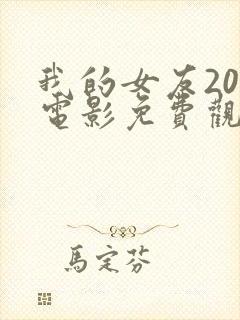 我的女友20
電影免費觀
馬定芬